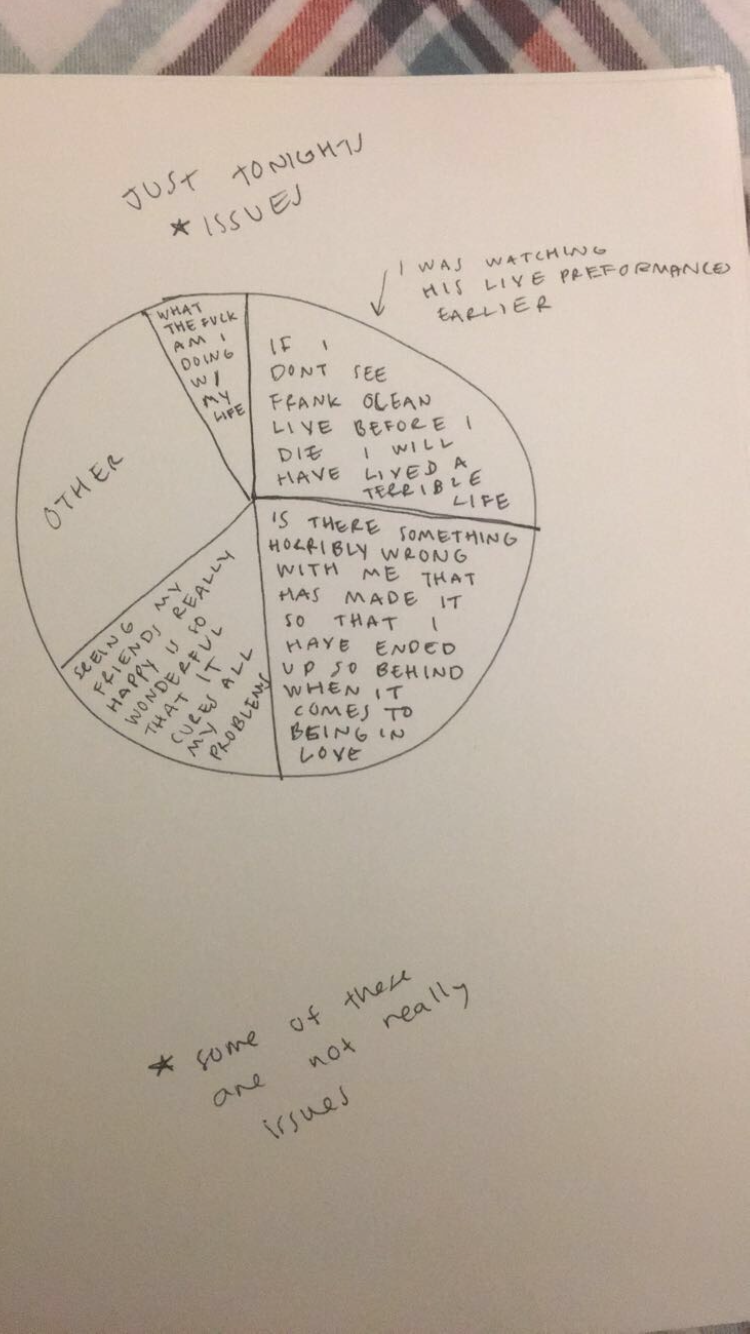 JUST TONIGHTS
* ISSUES
I WAS WATCHING
HIS LIVE PREFORMANCES
EARLIER
WHAT
THE FUCK
AM I
DOING
W/
MY
LIFE
IF I
DONT SEE
FRANK OCEAN
LIVE BEFORE I
DIE I WILL
HAVE LIVED A
TERRIBLE
LIFE
OTHER
IS THERE SOMETHING
HORRIBLY WRONG
WITH ME THAT
HAS MADE IT
SO THAT I
HAVE ENDED
UP SO BEHIND
WHEN IT
COMES TO
BEING IN
LOVE
SEEING MY
FRIENDS REALLY
HAPPY IS SO
WONDERFUL
THAT IT
CURES ALL
MY
PROBLEMS
* some of these
are not really
issues